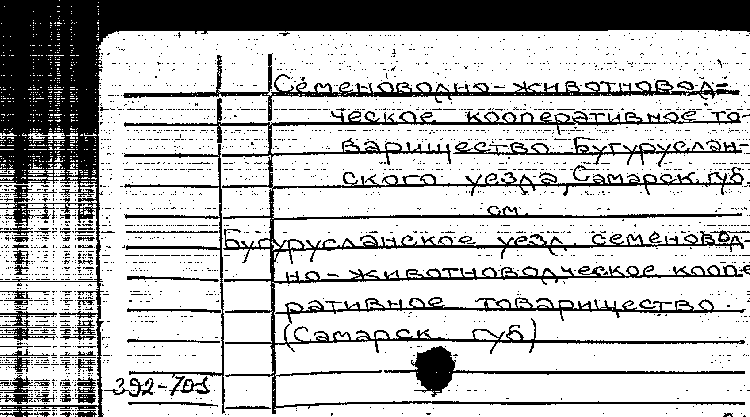 Семеноводно-животновод-
ческое кооперативное то-
варищество Бугуруслан-
ского уезда, Самарск. губ.
см.
Бугурусланское уезд. семеновод-
но-животноводческое коопе-
ративное товарищество.
(Самарск. губ)
392-701